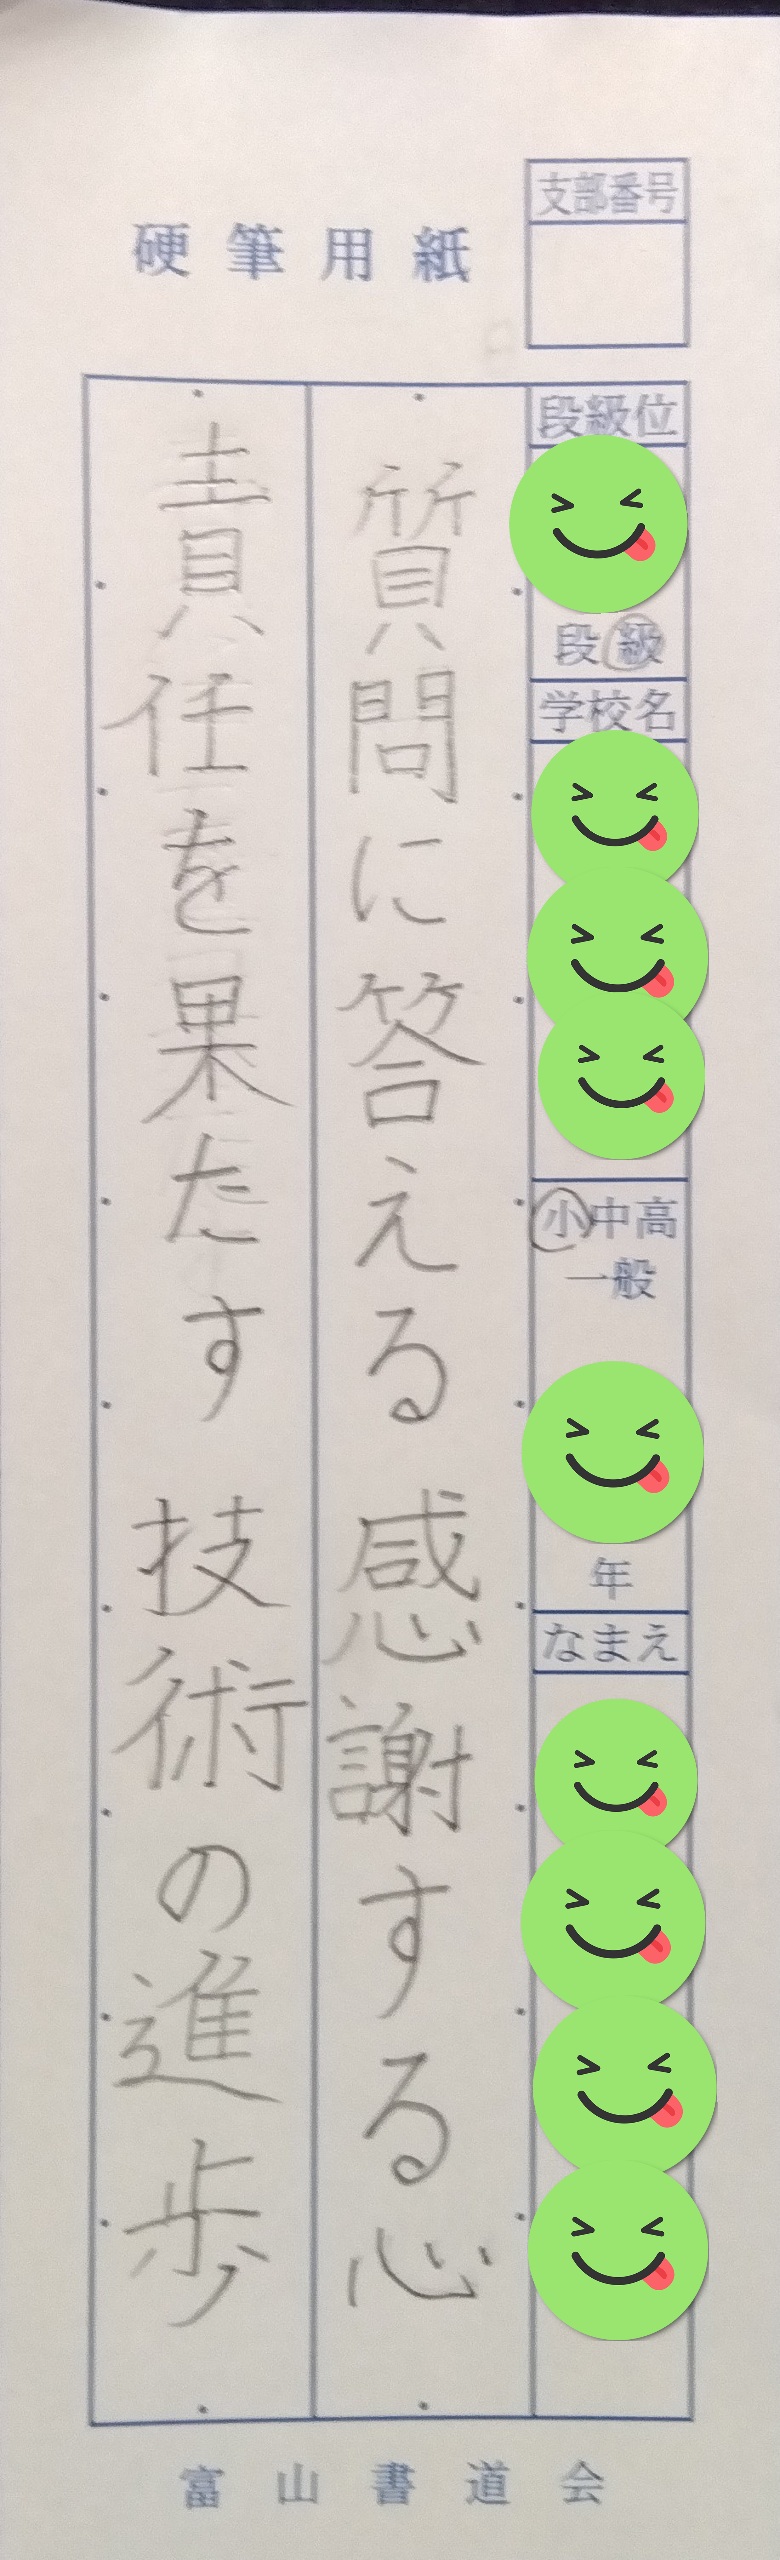 硬筆用紙
支部番号
段級位
段級
学校名
小中高
一般
年
なまえ
質問に答える 感謝する心
責任を果たす 技術の進歩
富山書道会